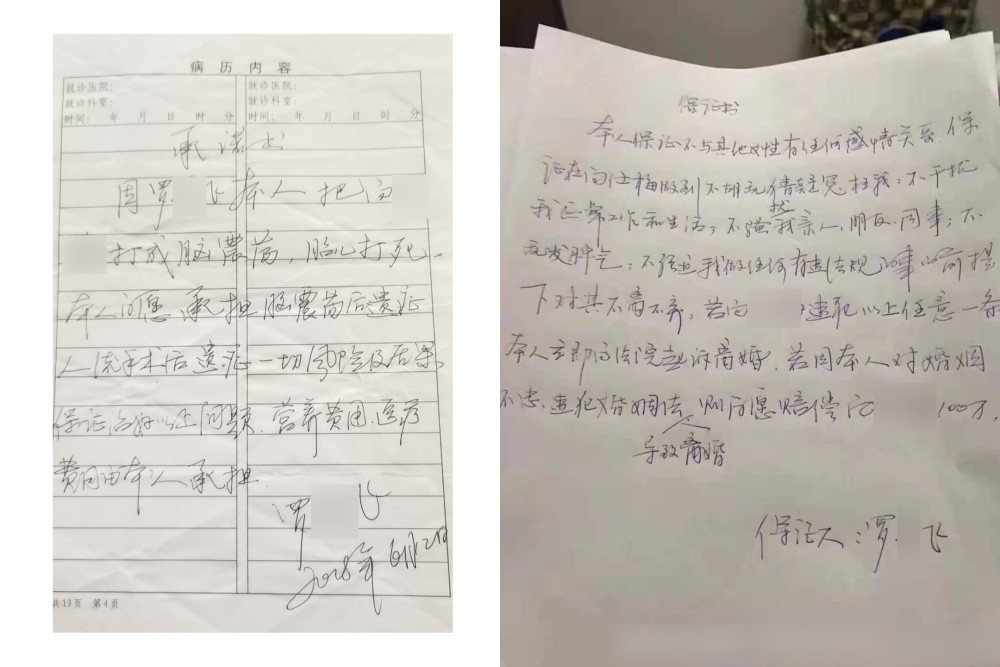 病历内容
就诊医院: 就诊医院:
就诊科室: 就诊科室:
时间: 年 月 日 时 分 时间: 年 月 日 时 分
承诺书
因罗 飞本人把向
打成脑震荡,胎儿打死.
本人自愿承担脑震荡后遗症
人流手术后遗症一切风险及后果
保证治好以上问题.营养费用.医疗
费用由本人承担.
罗 飞
年6月2日
共13页 第4页
保证书
本人保证不与其他女性有任何感情关系.保
证在向 做到不胡乱猜疑冤枉我;不干扰
我正常工作和生活;不骚扰我亲人.朋友.同事;不
发脾气;不强迫我做任何有违法规 事 前提
下对其不离不弃,若向 违犯以上任意一条
本人立即向法院起诉离婚.若因本人对婚姻
不忠.违犯婚姻法导致离婚,则自愿赔偿向 100万.
保证人:罗 飞